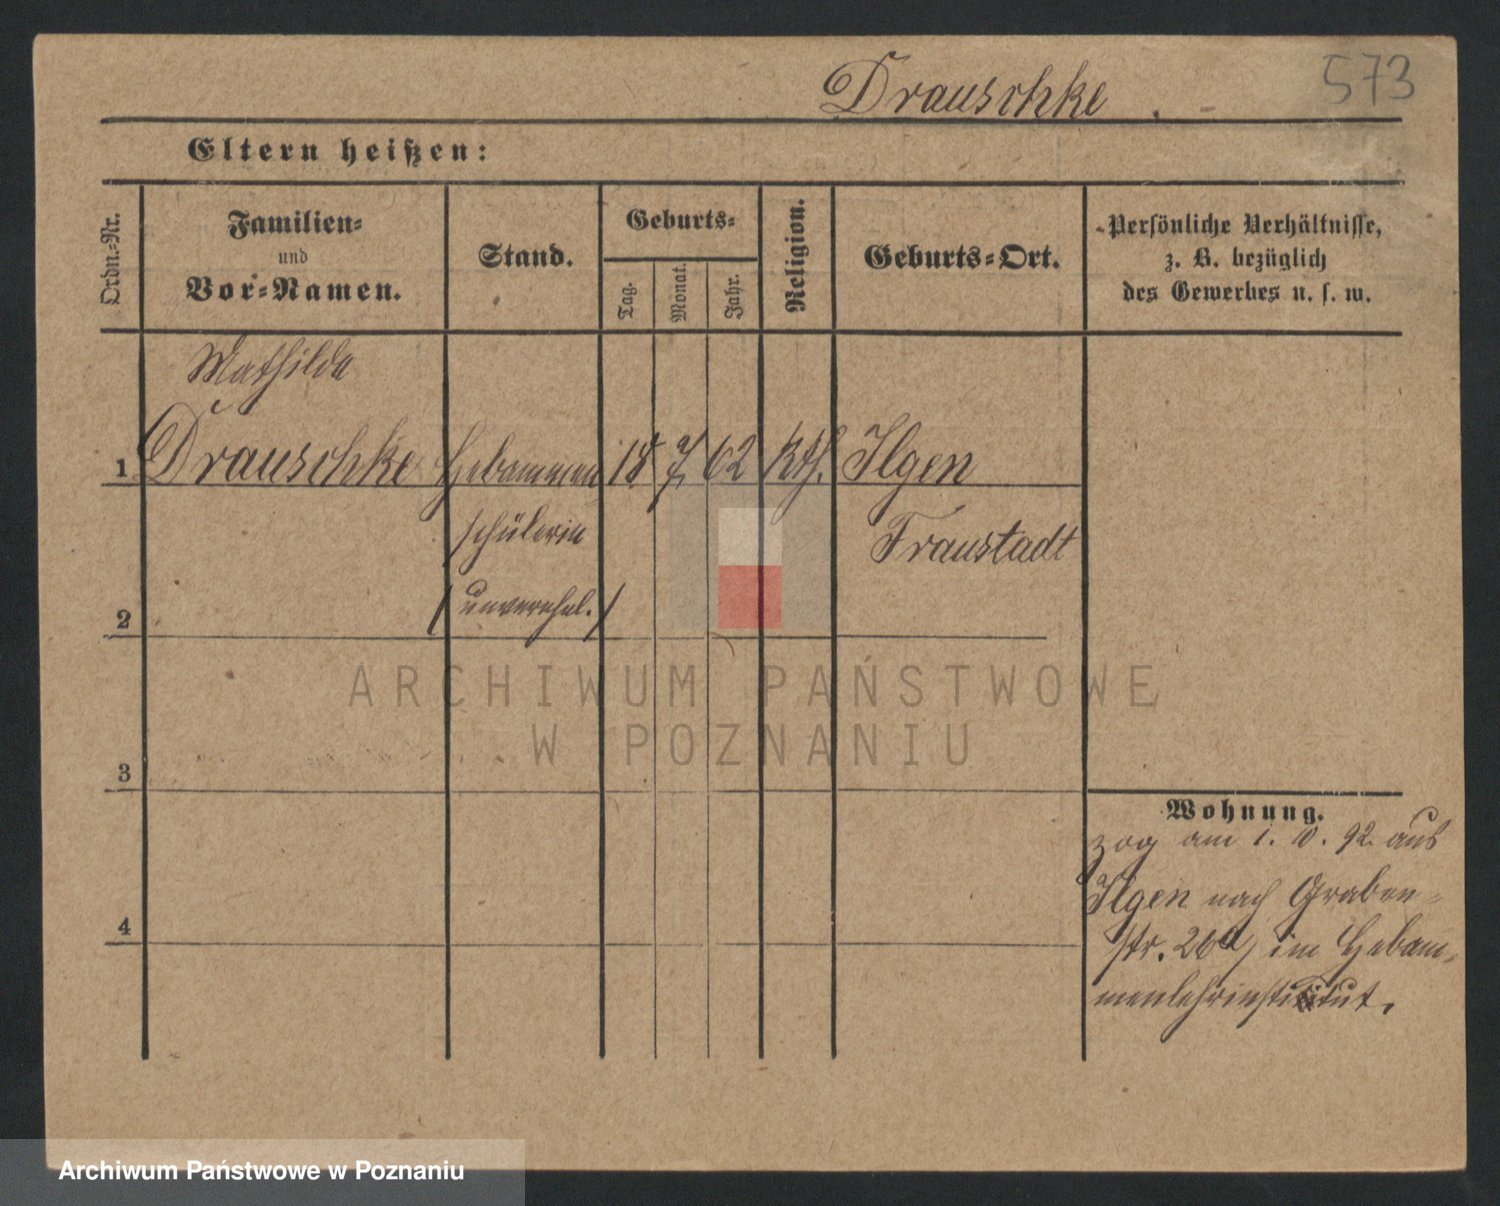 Drauschke.
573
Eltern heißen:
Ordn.-Nr.
Familien-
und
Vor-Namen.
Stand.
Geburts-
Tag.
Monat.
Jahr.
Religion.
Geburts-Ort.
Persönliche Verhältnisse,
z. B. bezüglich
des Gewerbes u. s. w.
Mathilde
1 Drauschke Hebammen 18 7 62 kth. Ilgen
schülerin Fraustadt
(unverehel.)
2
3
4
Wohnung.
zog am 1. 10. 92. aus
Ilgen nach Graben-
str. 26a, im Hebam-
menlehrinstitut.
ARCHIWUM PAŃSTWOWE
W POZNANIU
Archiwum Państwowe w Poznaniu